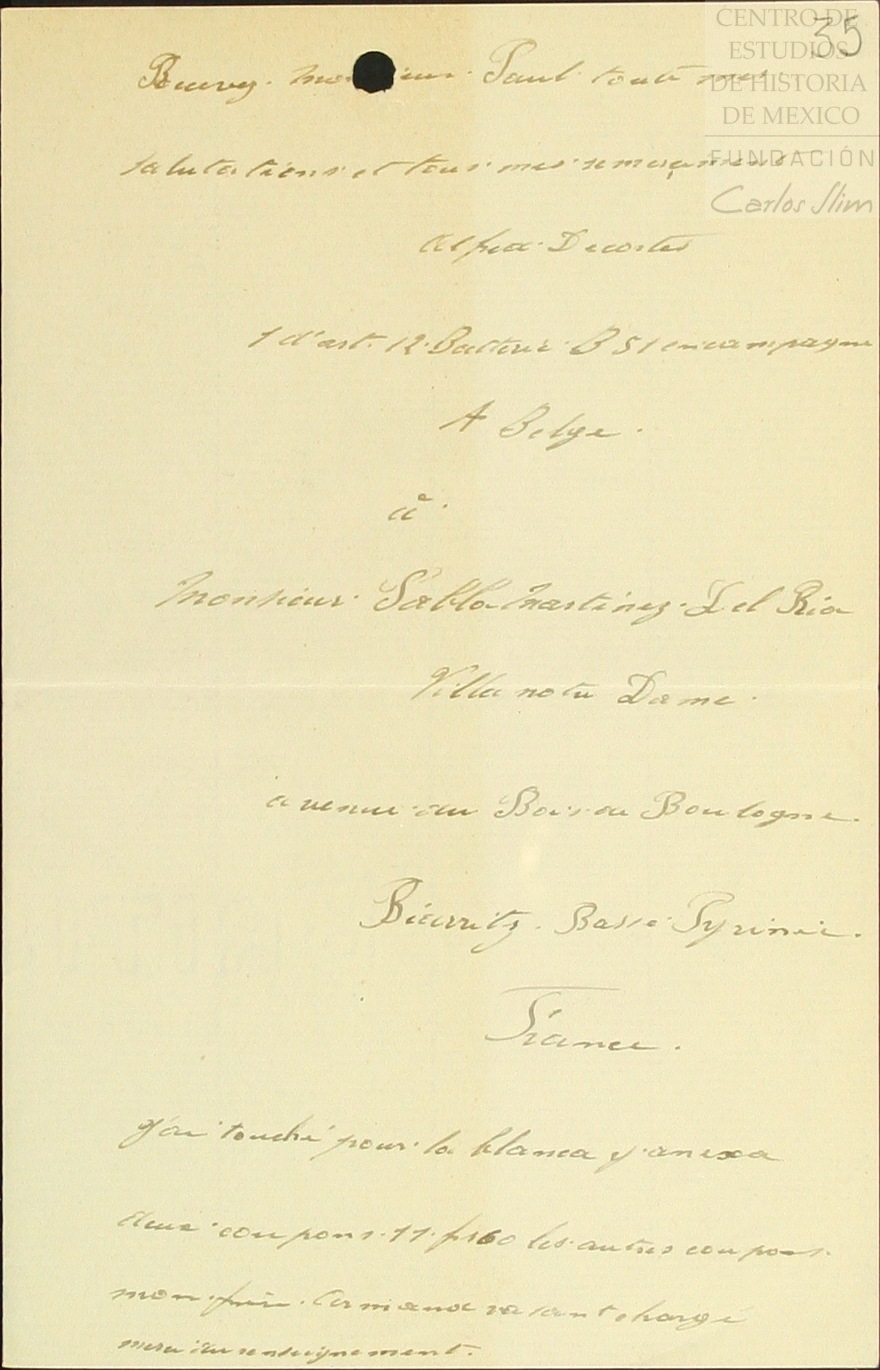 CENTRO DE
ESTUDIOS
DE HISTORIA
DE MEXICO
FUNDACIÓN
Carlos Slim
35
Paul toute mes
salutations et tous mes
Alfred Decortes
1 d'art. 12. Batterie B 51 en campagne
A Belge.
à
Monsieur Pablo Martinez Del Rio
Villa notre Dame.
avenue du Bois de Boulogne.
Biarritz. Basse Pyrinée.
France.
J'ai touché pour la blanca y anexa
deux coupons 11 fr60 les autres coupons
mon frère Armand chargé
merci du renseignement.